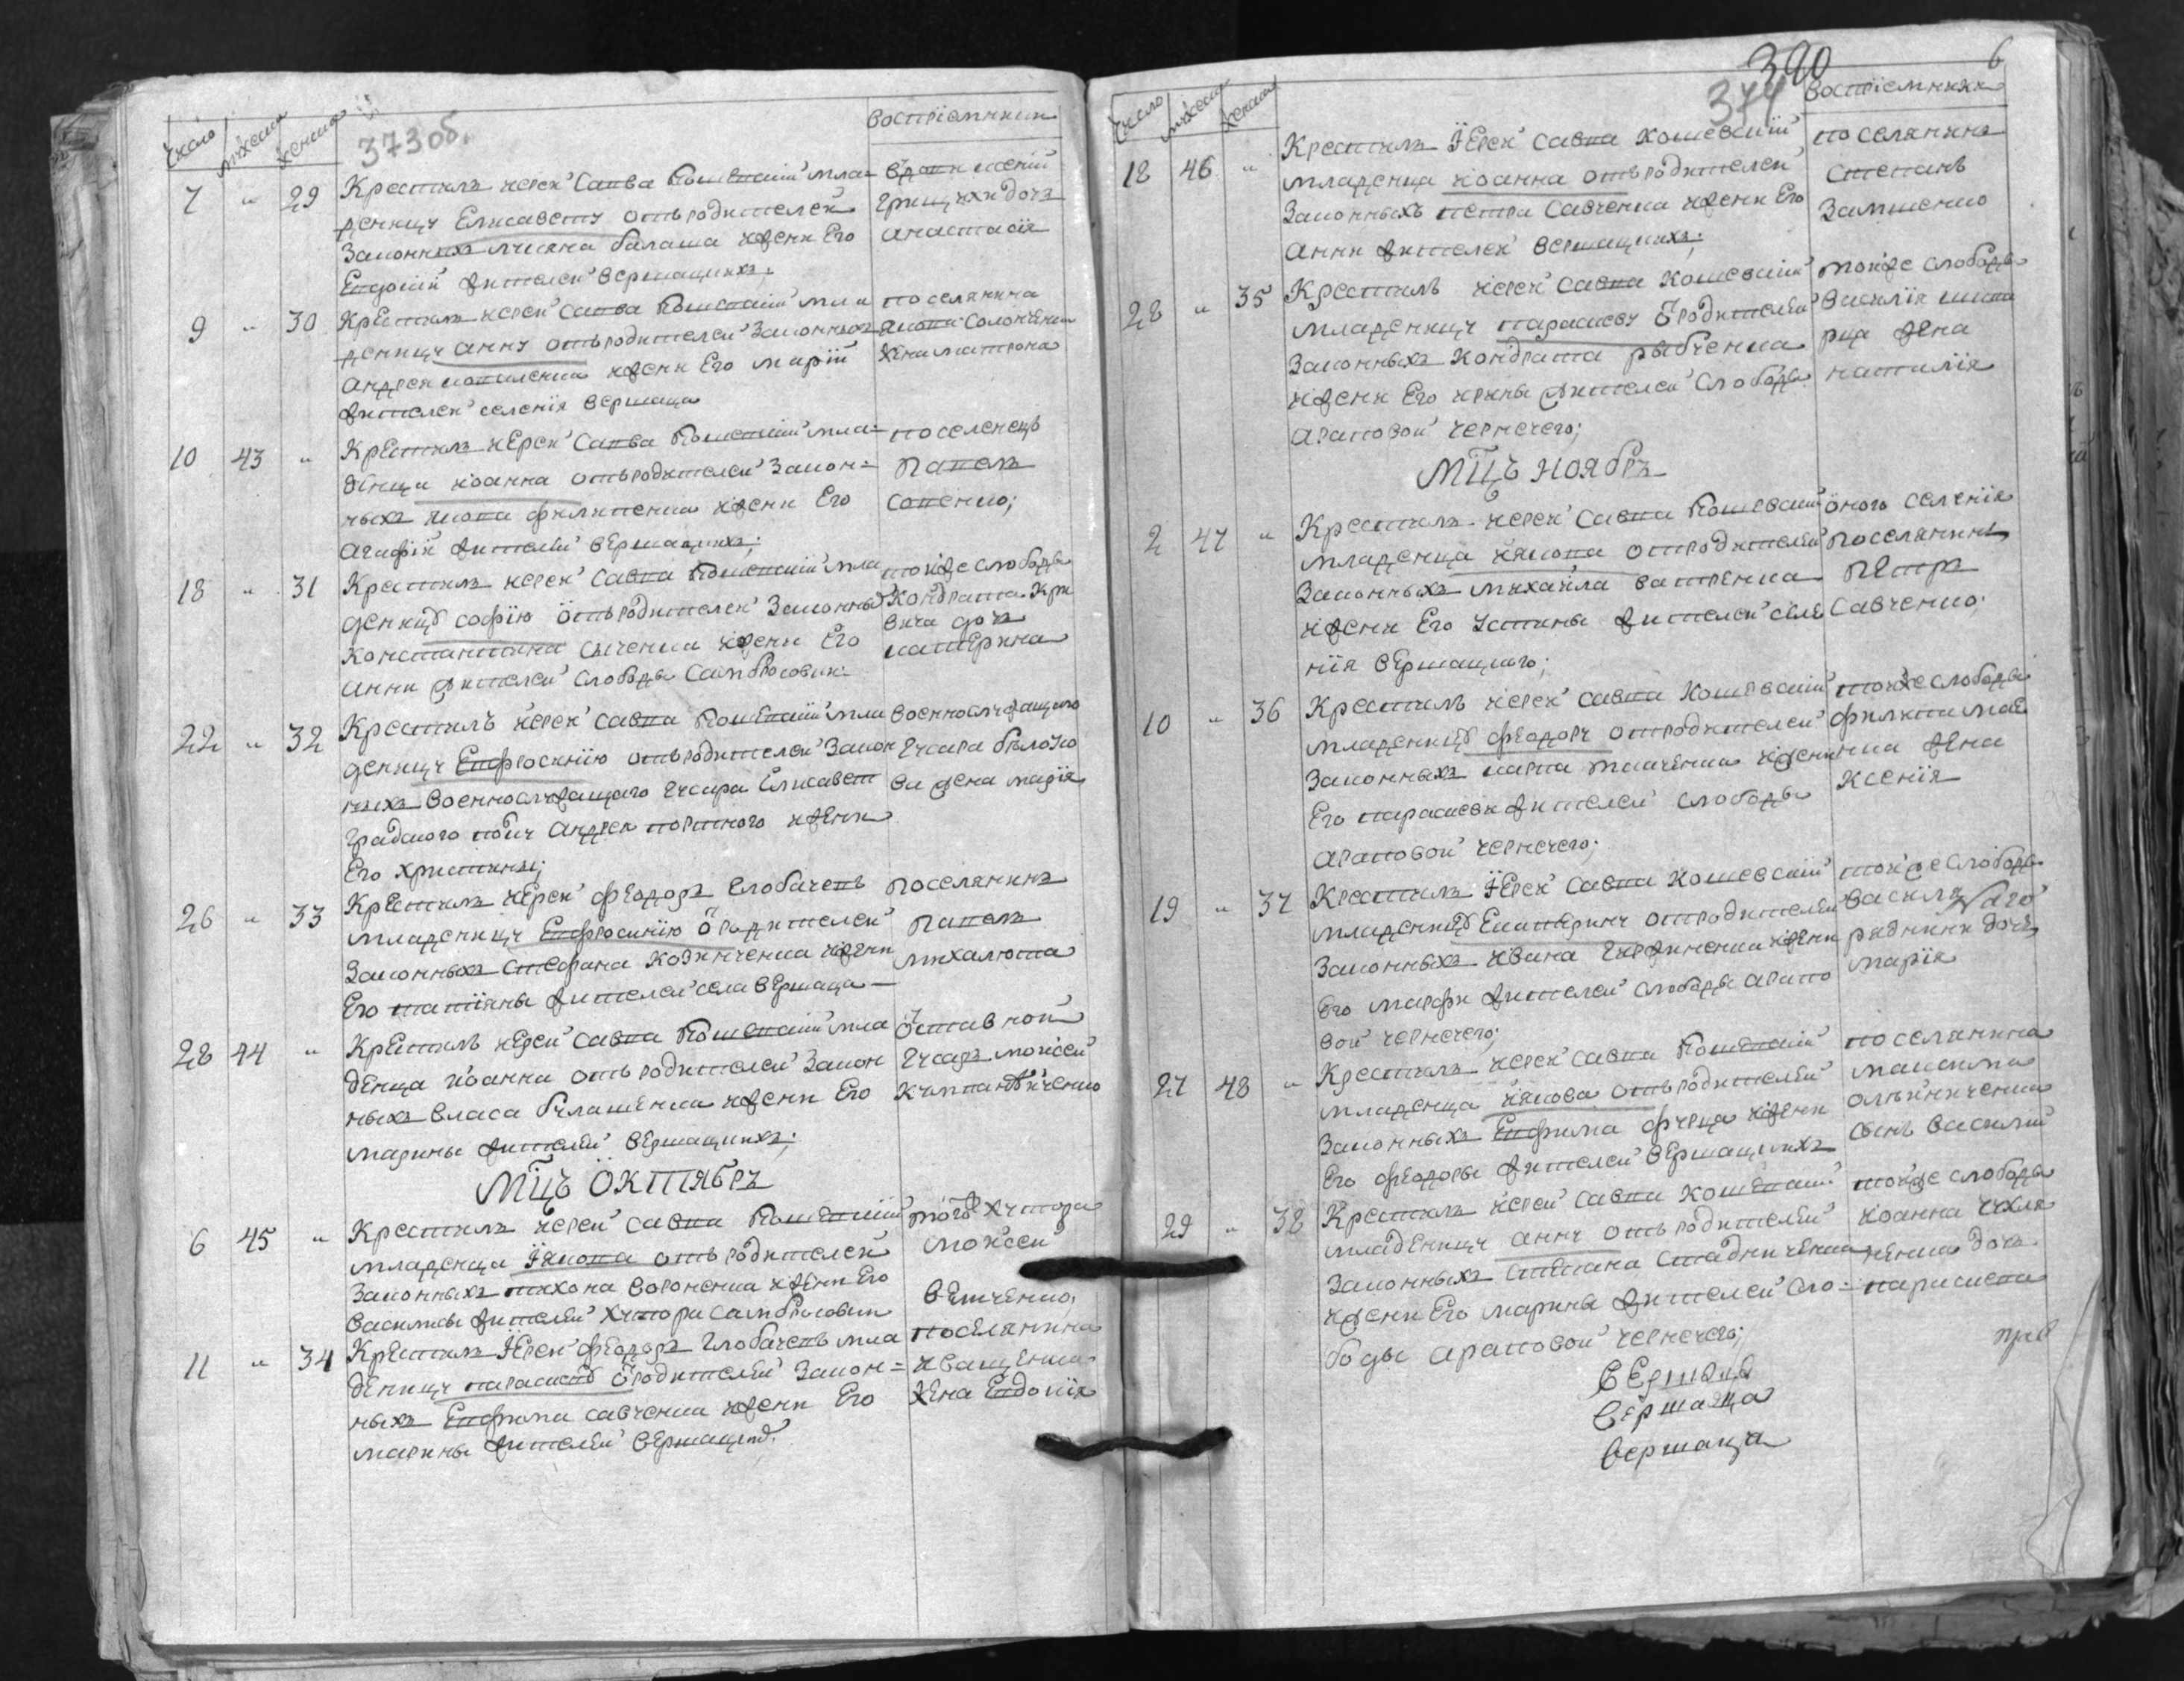 число мужеск женска
373 об.
воспріемники
7 " 29 Крестилъ иерей Савва Кошевскій мла-
деницу Елисавету отъ родителей
законныхъ Лукяна балаша и жени Его
Евдокіи жителей вершацкихъ;
Грицихи дочь
анастасія
9 " 30 Крестилъ иерей Савва Кошевскій мла
деницу анну отъ родителей законныхъ
андрея коваленка и жени Его маріи
жителей селенія вершаца
поселянина
якова
жена матрона
10 43 " Крестилъ иерей Савва Кошевскій мла-
денца иоанна отъ родителей закон-
ныхъ якова филипенка и жени Его
агафіи жителей вершацкихъ;
поселенецъ
павелъ
савенко;
18 " 31 Крестилъ иерей Савва Кошевскій мла
деницу софію отъ родителей законныхъ
константина сиченка и жени Его
анни жителей слободы
тойже слободы
кондрата кри
вича дочь
катерина
22 " 32 Крестилъ иерей Савва Кошевскій мла
деницу Евфросинію отъ родителей закон
ныхъ военнослужащаго гусара Елисавет
градского полку андрея портного и жени
Его христины;
военнослужащаго
гусара
жена марія
26 " 33 Крестилъ иерей феодоръ Глобачевъ
младеницу Евфросинію от родителей
законныхъ стефана козинченка и жени
Его татіяны жителей села вершаца
поселянинъ
павелъ
михалюта
28 44 " Крестилъ иерей Савва Кошевскій мла
денца иоанна отъ родителей закон
ныхъ власа булашенка и жени Его
марины жителей вершацкихъ;
отставной
гусаръ мойсей
МЦЪ ОКТЯБРЬ
6 45 " Крестилъ иерей Савва Кошевскій
младенца якова отъ родителей
законныхъ тихона вороненка и жени Его
василисы жителей хутора
того хутора
мойсей
ветченко;
11 " 34 Крестилъ иерей феодоръ Глобачевъ мла
деницу параскеву от родителей закон-
ныхъ Евфима савченка и жени Его
марины жителей вершацкихъ.
поселянина
иващенка
жена Евдокія
390
374
6
число мужеска женска
воспріемники
18 46 " Крестилъ иерей Савва Кошевскій
младенца иоанна отъ родителей
законныхъ петра савченка и жени Его
анни жителей вершацкихъ;
поселянинъ
степанъ
28 " 35 Крестилъ иерей Савва Кошевскій
младеницу параскеву от родителей
законныхъ кондрата рябченка
и жени Его ирины жителей слободы
араповой чернечего;
тойже слободы
василія
жена
наталія
МЦЪ НОЯБРЬ
2 47 " Крестилъ иерей Савва Кошевскій
младенца иякова от родителей
законныхъ михайла ватченка
и жени Его устины жителей селе
нія вершацкого;
оного селенія
поселянинъ
петръ
савченко;
10 " 36 Крестилъ иерей Савва Кошевскій
младеницу феодору от родителей
законныхъ карпа ткаченка и жени
Его параскеви жителей слободы
араповой чернечего;
тойже слободы
филипа
жена
ксенія
19 " 37 Крестилъ иерей Савва Кошевскій
младеницу Екатерину от родителей
законныхъ ивана и жени
Его марфи жителей слободы арапо
вой чернечего;
тойже слободы
василя
дочь
марія
27 48 " Крестилъ иерей Савва Кошевскій
младенца иякова отъ родителей
законныхъ Евфима и жени
Его феодоры жителей вершацкихъ
поселянина
максима
олейниченка
сынъ василій
29 " 38 Крестилъ иерей Савва Кошевскій
младеницу анну отъ родителей
законныхъ степана стадниченка
и жени Его марины жителей сло-
боды араповой чернечего;
тойже слободы
иоанна
дочь
параскева
вершаца
вершаца
вершаца